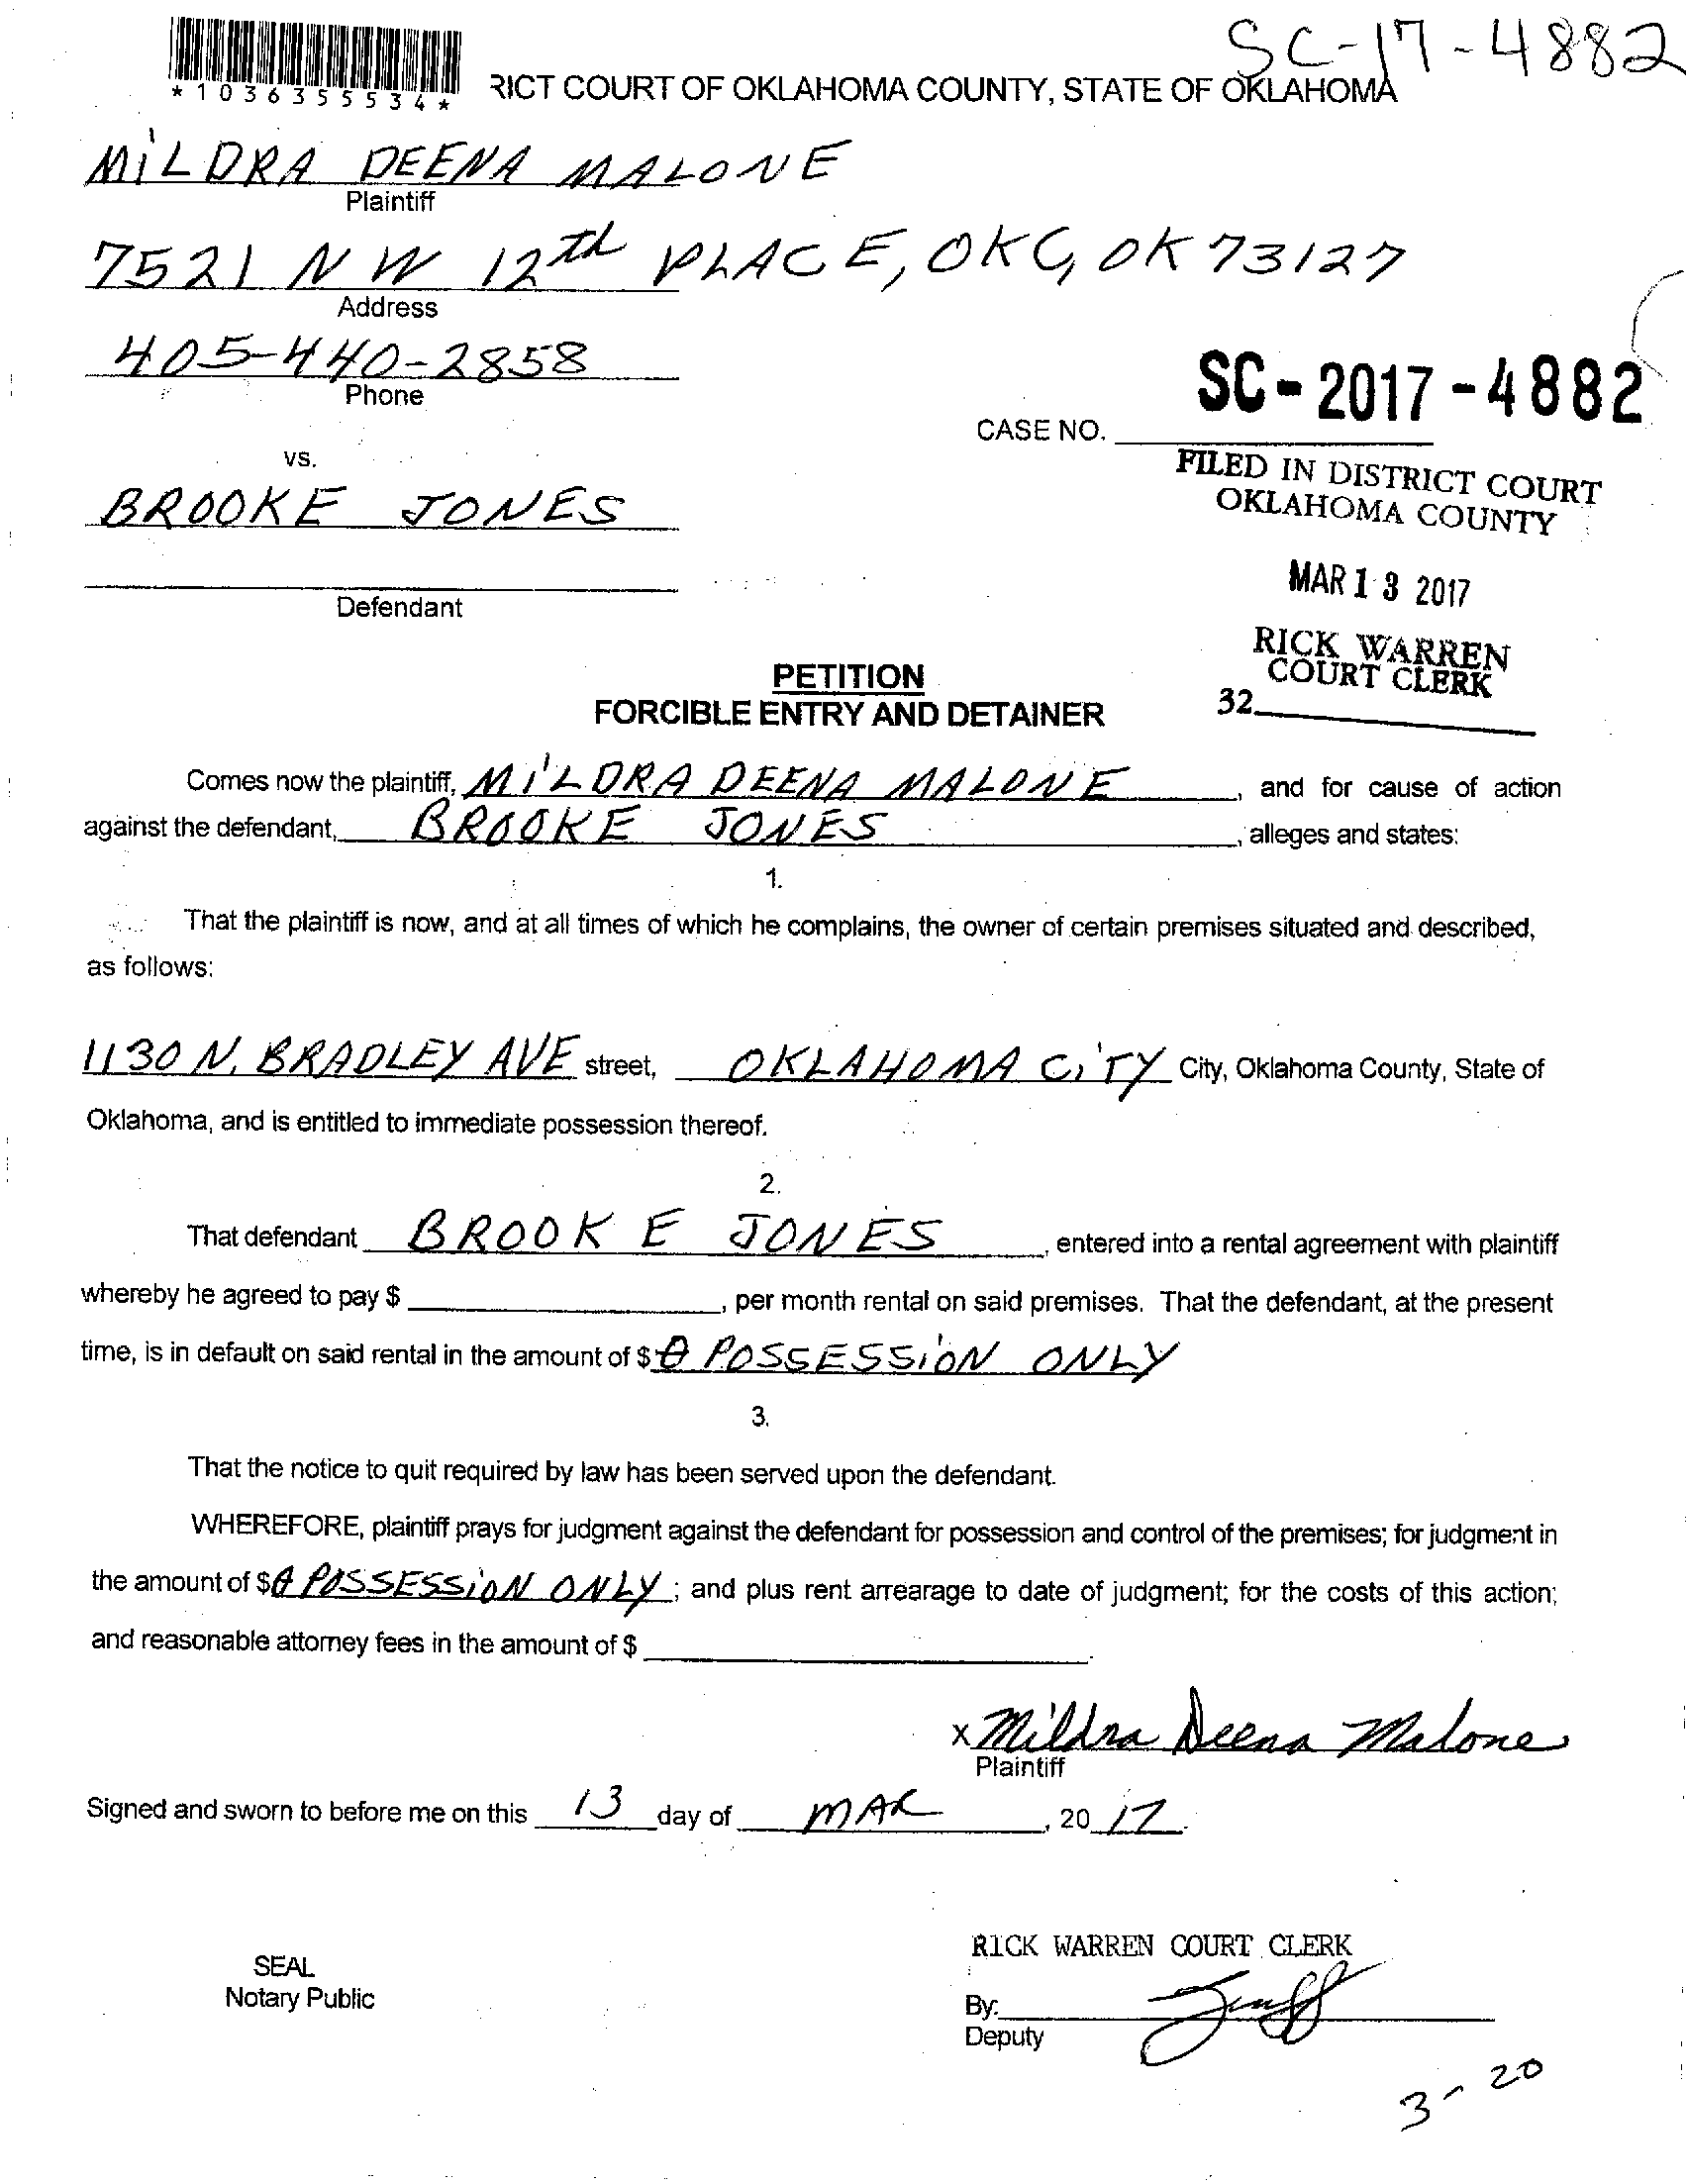 SC-17-4882
*1036355534*
RICT COURT OF OKLAHOMA COUNTY, STATE OF OKLAHOMA
MILDRA DEENA MALONE
Plaintiff
7521 NW 12th PLACE, OKC, OK 73127
Address
405-440-2858
Phone
SC-2017-4882
CASE NO.
vs.
FILED IN DISTRICT COURT
OKLAHOMA COUNTY
BROOKE JONES
MAR 13 2017
Defendant
RICK WARREN
COURT CLERK
32
PETITION
FORCIBLE ENTRY AND DETAINER
Comes now the plaintiff, MILDRA DEENA MALONE, and for cause of action
against the defendant, BROOKE JONES, alleges and states:
1.
That the plaintiff is now, and at all times of which he complains, the owner of certain premises situated and described,
as follows:
1130 N. BRADLEY AVE street, OKLAHOMA CITY City, Oklahoma County, State of
Oklahoma, and is entitled to immediate possession thereof.
2.
That defendant BROOKE JONES, entered into a rental agreement with plaintiff
whereby he agreed to pay $, per month rental on said premises. That the defendant, at the present
time, is in default on said rental in the amount of $ 0 POSSESSION ONLY
3.
That the notice to quit required by law has been served upon the defendant.
WHEREFORE, plaintiff prays for judgment against the defendant for possession and control of the premises; for judgment in
the amount of $ 0 POSSESSION ONLY; and plus rent arrearage to date of judgment; for the costs of this action;
and reasonable attorney fees in the amount of $.
x Mildra Deena Malone
Plaintiff
Signed and sworn to before me on this 13 day of MAR, 20 17.
RICK WARREN COURT CLERK
SEAL
Notary Public
By:
Deputy
3-20